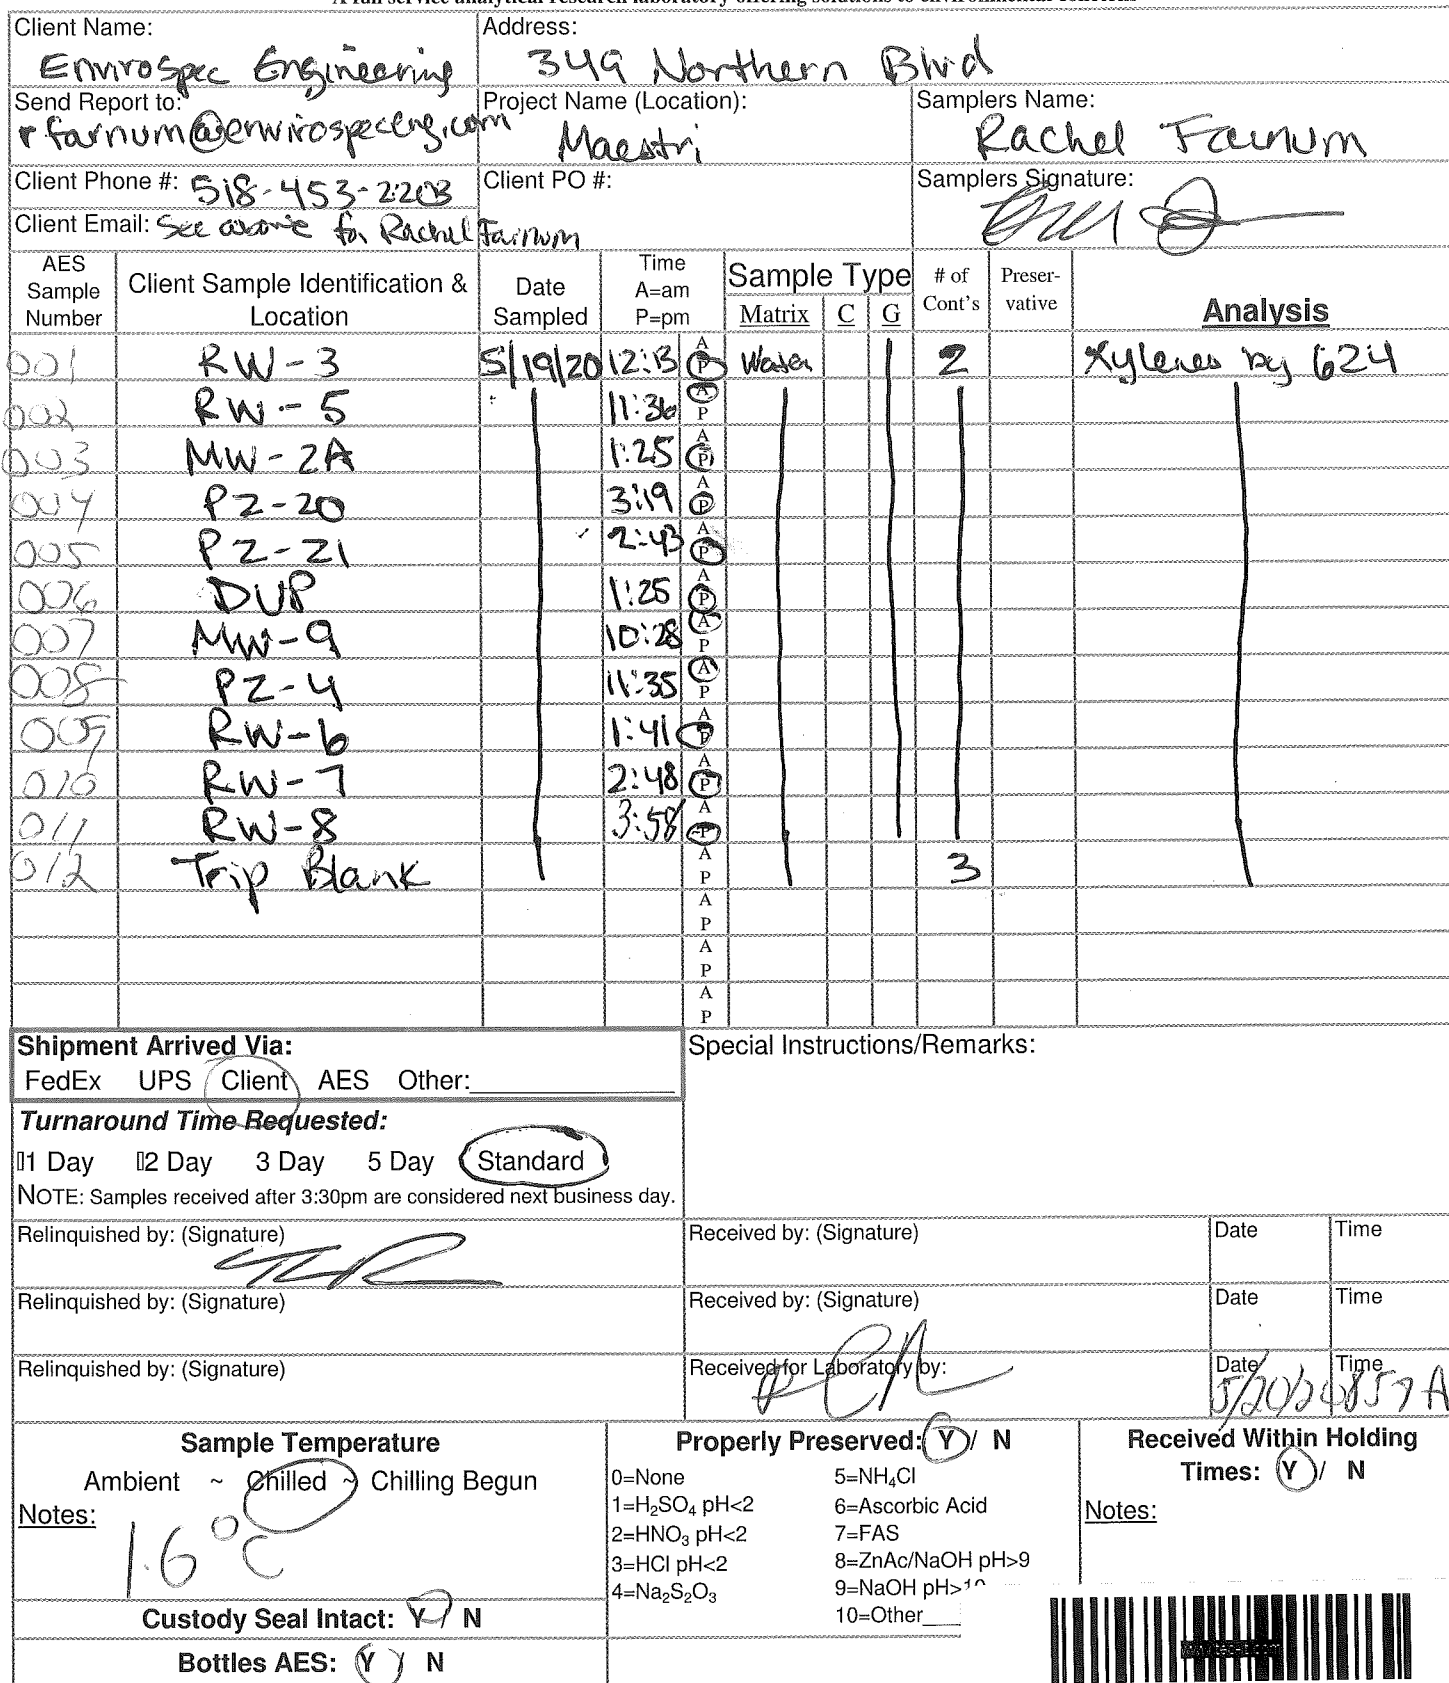 A full service analytical research laboratory offering solutions to environmental concerns
Client Name:
Envirospec Engineering
Address:
349 Northern Blvd
Send Report to:
rfarnum@envirospeceng.com
Project Name (Location):
Maestri
Samplers Name:
Rachel Farnum
Client Phone #: 518-453-2203
Client PO #:
Samplers Signature:
Client Email: See above for Rachel Farnum
AES Sample Number
Client Sample Identification & Location
Date Sampled
Time A=am P=pm
Sample Type
Matrix C G
# of Cont's
Preser-vative
Analysis
001 RW-3 5/19/20 12:13 A P Water 2 Xylenes by 624
002 RW-5 11:36 A P
003 MW-2A 1:25 A P
004 PZ-20 3:19 A P
005 PZ-21 2:43 A P
006 DUP 1:25 A P
007 MW-9 10:28 A P
008 PZ-4 11:35 A P
009 RW-6 1:41 A P
010 RW-7 2:48 A P
011 RW-8 3:58 A P
012 Trip Blank A P 3
A P
A P
A P
Shipment Arrived Via:
FedEx UPS Client AES Other:
Special Instructions/Remarks:
Turnaround Time Requested:
1 Day 2 Day 3 Day 5 Day Standard
NOTE: Samples received after 3:30pm are considered next business day.
Relinquished by: (Signature)
Received by: (Signature)
Date
Time
Relinquished by: (Signature)
Received by: (Signature)
Date
Time
Relinquished by: (Signature)
Received for Laboratory by:
Date 5/20/20
Time 857 A
Sample Temperature
Ambient ~ Chilled ~ Chilling Begun
Notes:
1.6°C
Custody Seal Intact: Y / N
Bottles AES: Y / N
Properly Preserved: Y / N
0=None
1=H₂SO₄ pH<2
2=HNO₃ pH<2
3=HCl pH<2
4=Na₂S₂O₃
5=NH₄Cl
6=Ascorbic Acid
7=FAS
8=ZnAc/NaOH pH>9
9=NaOH pH>10
10=Other
Received Within Holding
Times: Y / N
Notes: